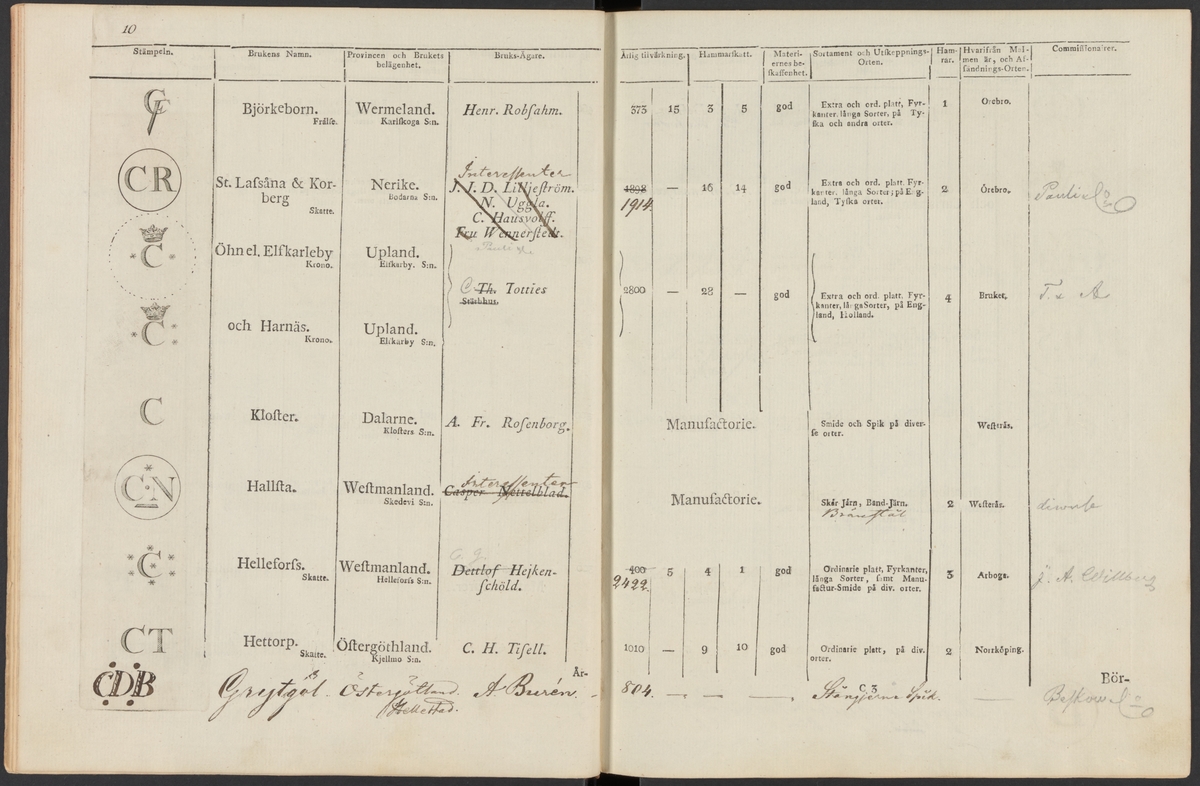 10
Stämpeln. Brukens Namn. Provincen och Brukets belägenhet. Bruks-Ägare. Årlig tilvärkning. Hammarskatt. Materiernes beskaffenhet. Sortament och Utskeppnings-Orten. Hamrar. Hvarifrån Malmen är, och Afsändnings-Orten. Commissionairer.
Björkeborn. Wermeland. Henr. Robſahm. 373 15 3 5 god Extra och ord. platt, Fyr- 1 Örebro.
Frälſe. Karlſkoga S:n. kanter, långa Sorter, på Ty-
ſka och andra orter.
Intereſſenter
CR St. Laſsåna & Kor- Nerike. J. J. D. Lilljeſtröm. 1898 — 16 14 god Extra och ord. platt, Fyr- 2 Örebro.
berg Bodarna S:n. N. Uggla. 1914. kanter, långa Sorter; på Eng-
Skatte. C. Hausvolff. land, Tyſka orter.
Fru Wennerſtedt.
C Öhn el. Elfkarleby Upland.
Krono. Elfkarby. S:n.
C Th. Totties 2800 — 28 — god Extra och ord. platt. Fyr- 4 Bruket. T. & A
Stärbhus. kanter, långa Sorter, på Eng-
land, Holland.
C och Harnäs. Upland.
Krono. Elfkarby S:n.
C Kloſter. Dalarne. A. Fr. Roſenborg. Manufactorie. Smide och Spik på diver- Weſterås.
Kloſters S:n. ſe orter.
Intereſſenter
CN Hallſta. Weſtmanland. Casper Nettelblad. Manufactorie. Skär Järn, Band-Järn. 2 Weſterås. diverſe
Skedevi S:n. Brännſtål
C Helleforſs. Weſtmanland. Dettlof Hejken- 400 5 4 1 god Ordinarie platt, Fyrkanter, 3 Arboga. J. A. Willberg
Skatte. Helleforſs S:n. ſchöld. 2422. långa Sorter, ſamt Manu-
factur-Smide på div. orter.
CT Hettorp. Öſtergöthland. C. H. Tiſell. 1010 — 9 10 god Ordinarie platt, på div. 2 Norrköping.
Skatte. Kjellmo S:n. orter.
Är- C 3 Bör-
CDB Öſtergötland. A Burén — 804. — — —